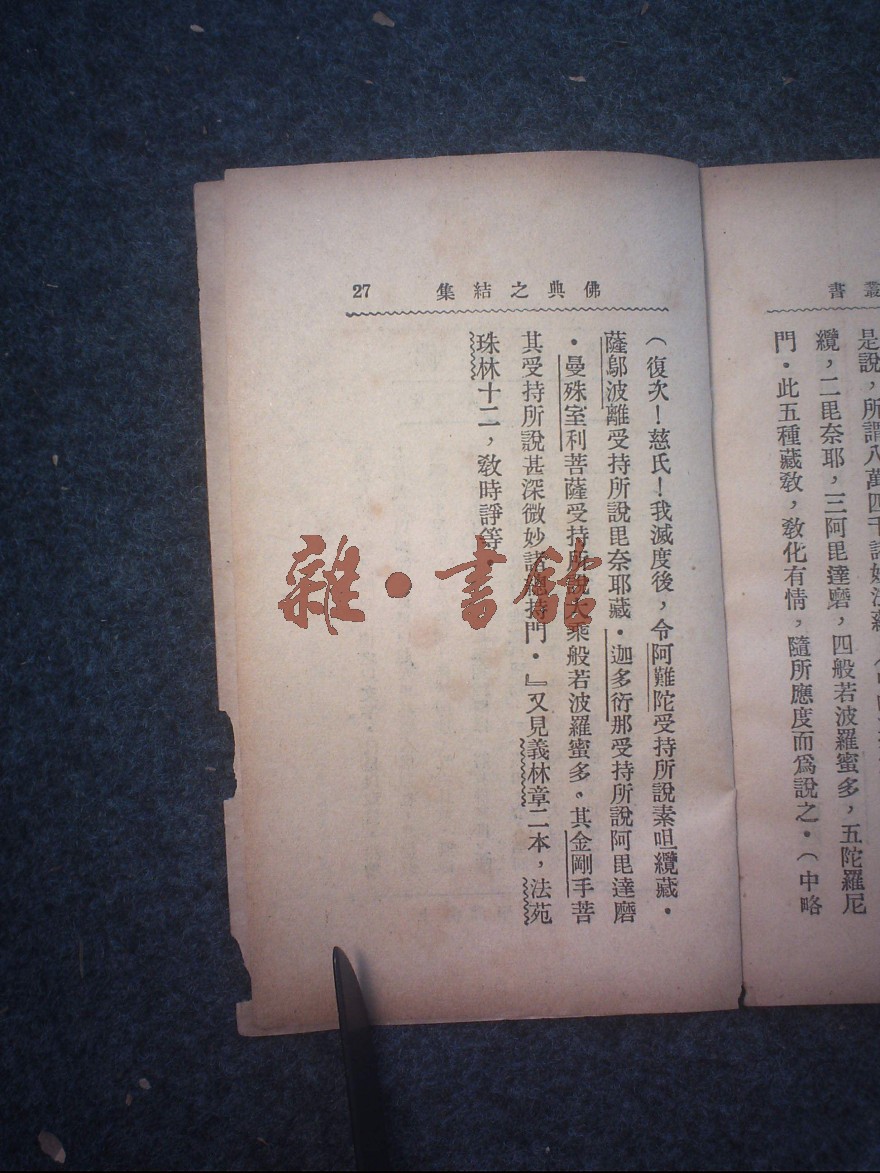 叢書
是說，所謂八萬四千諸妙法蘊
纜，二毘奈耶，三阿毘達磨，四般若波羅蜜多，五陀羅尼
門．此五種藏教，教化有情，隨所應度而爲說之．（中略
佛典之結集 27
（復次！慈氏！我滅度後，令阿難陀受持所說素呾纜藏．
薩鄔波離受持所說毘奈耶藏．迦多衍那受持所說阿毘達磨
．曼殊室利菩薩受持所說大乘般若波羅蜜多。其金剛手菩
其受持所說甚深微妙諸總持門．』又見義林章二本，法苑
珠林十二，教時諍等
雜·書館